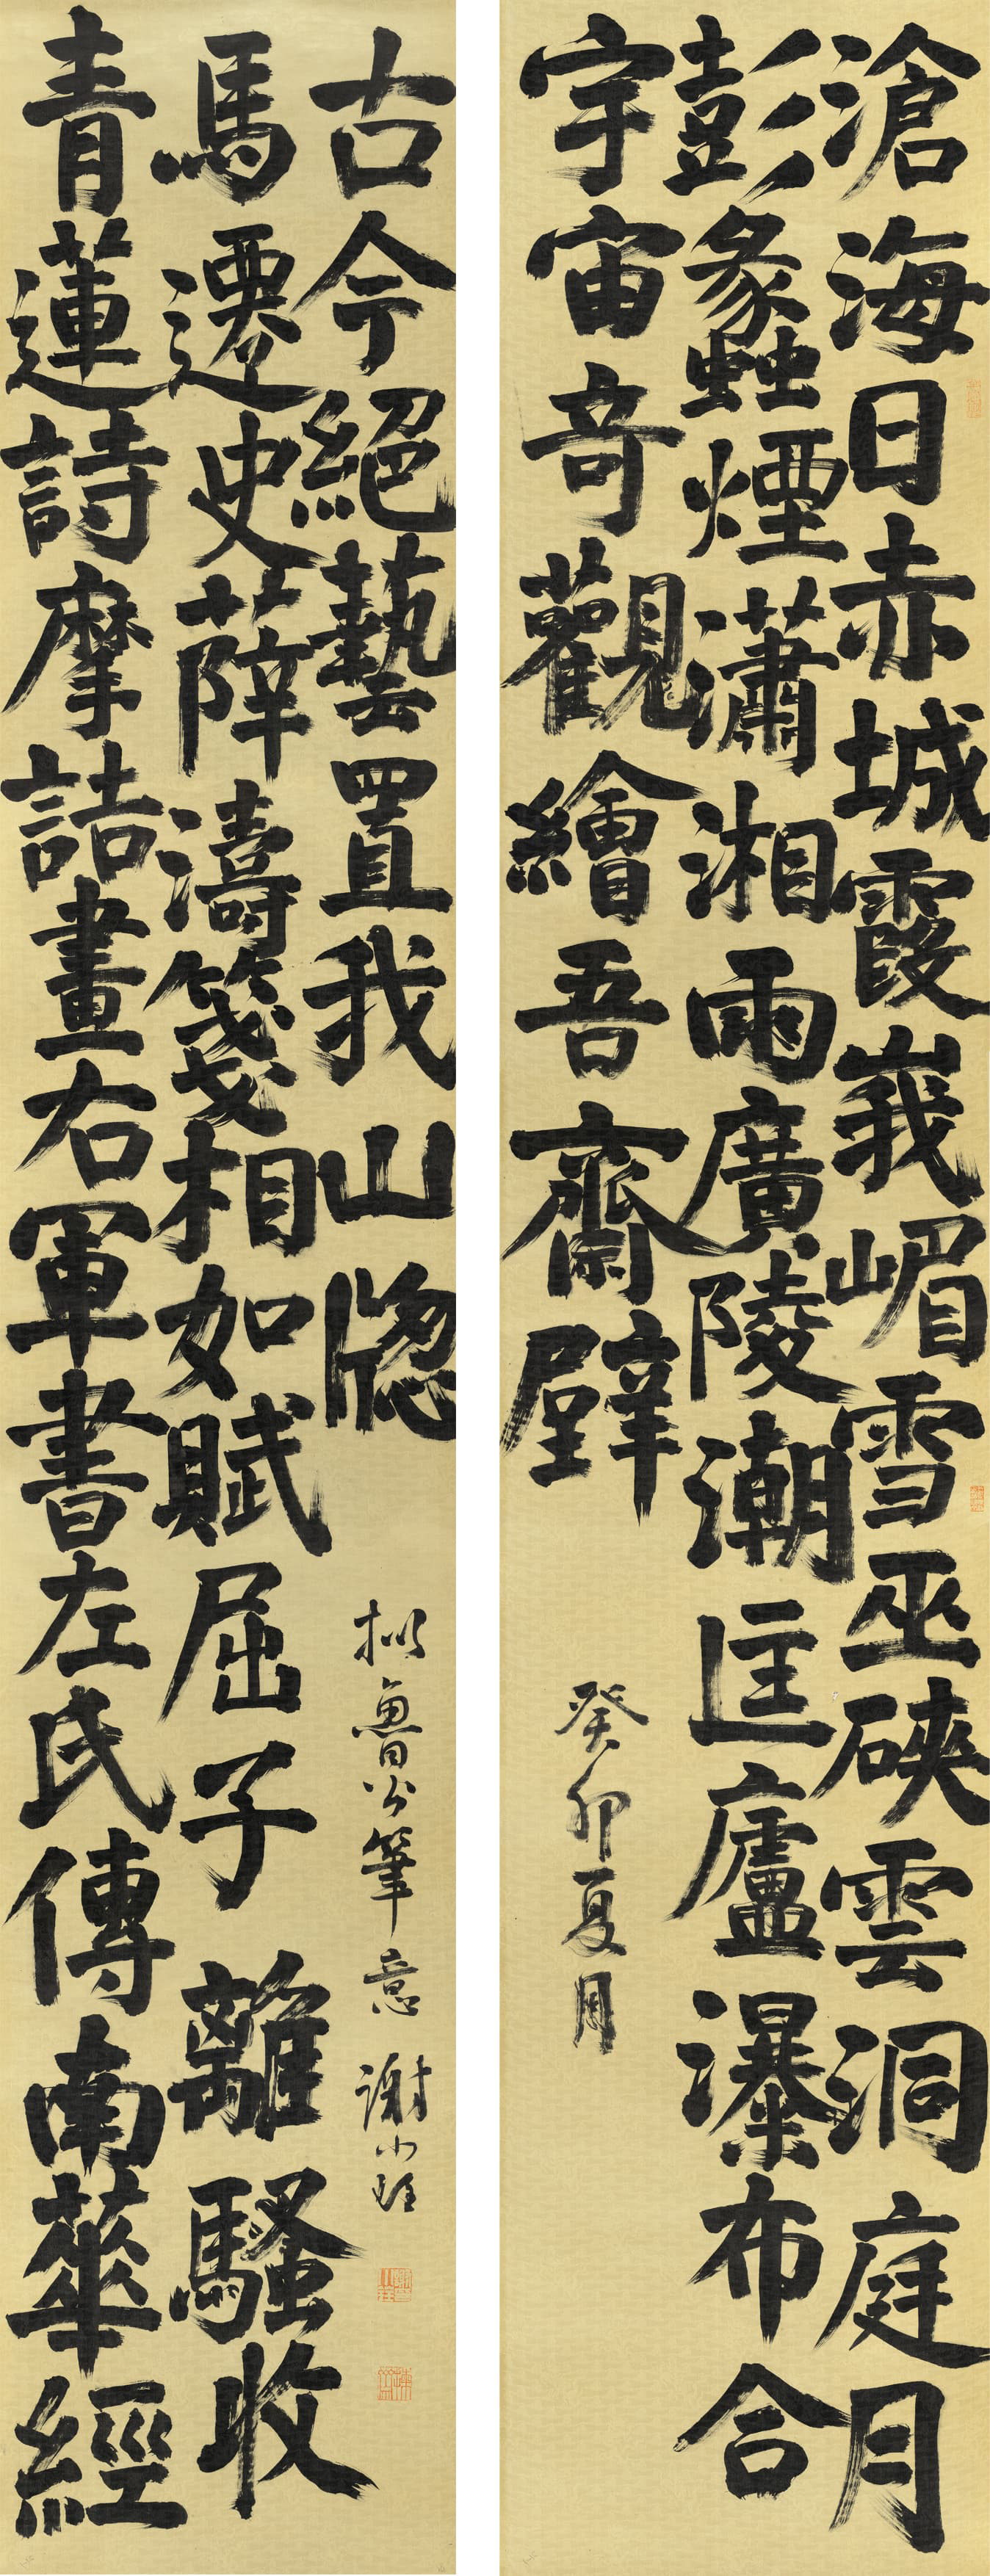 滄海日赤城霞峩嵋雪巫硤雲洞庭月
彭蠡煙瀟湘雨廣陵潮匡廬瀑布合
宇宙奇觀繪吾齋壁
癸卯夏月
青蓮詩摩詰畫右軍書左氏傳南華經
馬遷史薛濤箋相如賦屈子離騷收
古今絕藝置我山牕
拟魯公筆意 謝小